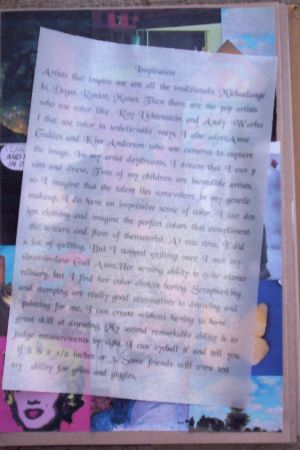 Inspiration
Artists that inspire me are all the traditionals Michaelange
lo, Degas, Renior, Monet. Then there are the pop artists
who use color like Roy Lichtenstein and Andy Warho
l that use color in unbelievable ways. I also adore Anne
Geddes and Kim Anderson who use cameras to capture
the image. In my artist daydreams, I dream that I can p
aint and draw. Two of my children are incredible artists,
so I imagine that the talent lies somewhere in my genetic
makeup. I do have an impressive sense of color. I can des
ign clothing and imagine the perfect colors that compliment
the texture and flow of thematerial. At one time, I did
a lot of quilting. But I stopped quilting once I met my
sister-in-love Gail Anne. Her sewing ability is quite extrao
rdinary, but I find her color choices boring. Scrapbooking
and stamping are really good alternatives to drawing and
painting for me. I can create without having to have
great skill at drawing. My second remarkable ability is to
judge measurements by sight. I can 'eyeball it' and tell you
if it is 2 1/2 inches or 3. Some friends will even test
my ability for grins and giggles.
I CAN
AND
IN